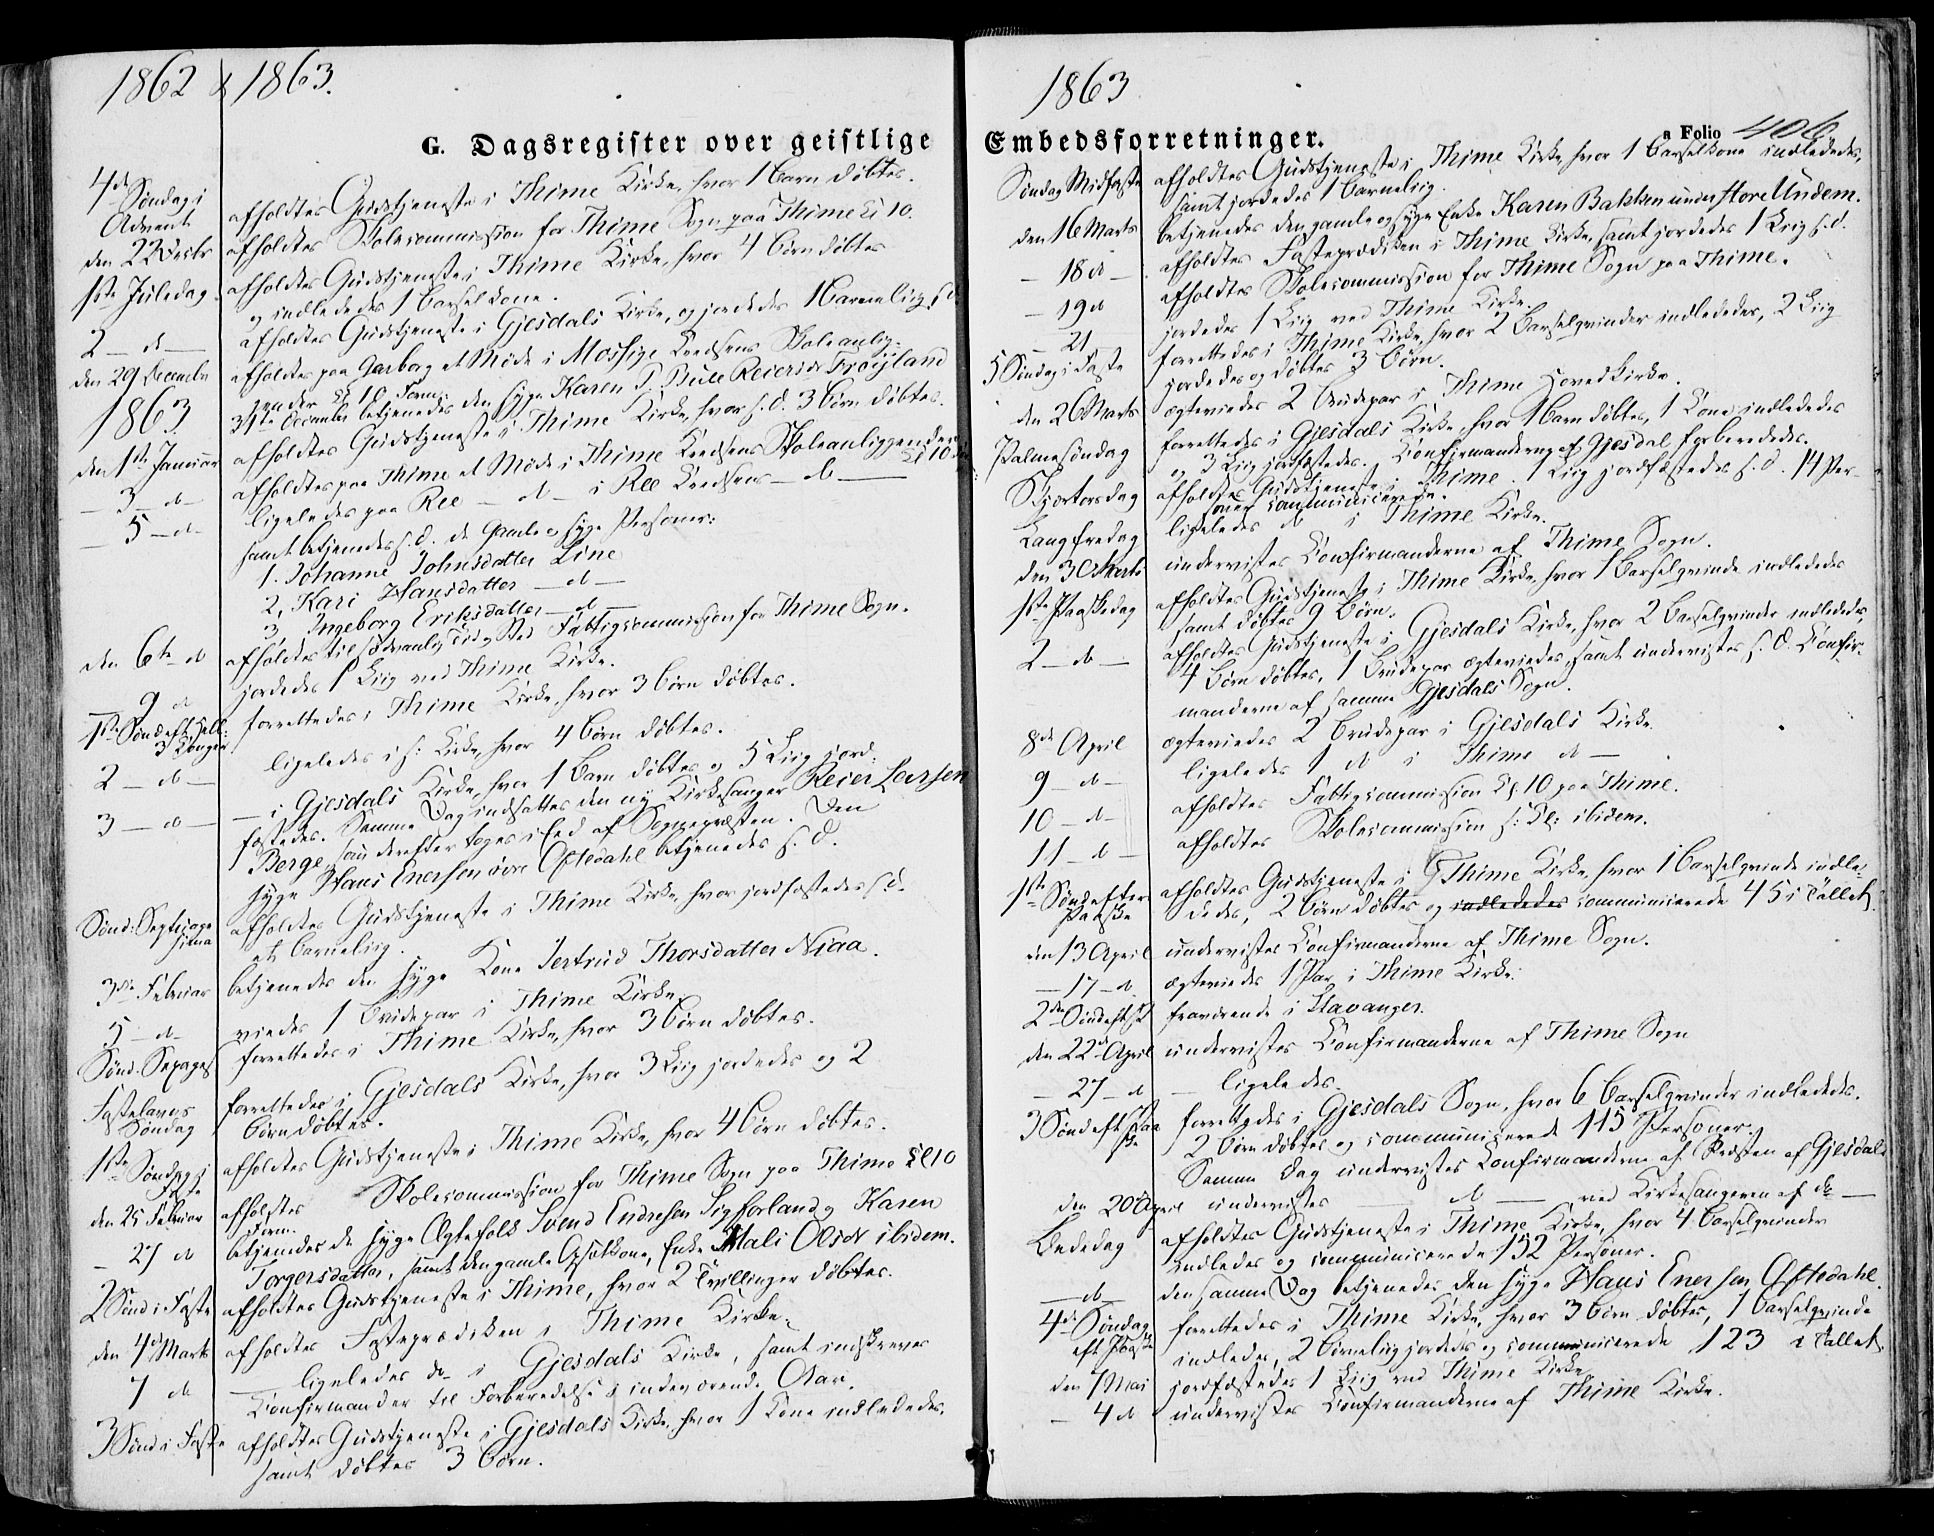 1862 & 1863.
G. Dagsregister over geistlige
4de Søndag i Advent afholdtes Gudstjeneste i Thime Kirke, hvor 1 Barn døbtes.
den 22 Decbr afholdtes Skolecommission for Thime Sogn paa Thime Kl 10.
1ste Juledag afholdtes Gudstjeneste i Thime Kirke, hvor 4 Børn døbtes
og indlededes 1 Barselkone.
2 – d – afholdtes Gudstjeneste i Gjesdals Kirke, og jordedes 1 Barnelig s. d.
den 29 Decembr afholdtes paa Garborg et Møde i Mossige Kredsens Skoleanlig-
gender Kl 10 Form.
31te December betjenedes den syge Karen P. Bule Reiersdr Frøyland
1863.
den 1ste Januar afholdtes Gudstjeneste i Thime Kirke, hvor s. d. 3 Børn døbtes.
– 3 – d – afholdtes paa Thime et Møde i Thime Kredsens Skoleanliggender Kl 10
– 5 – d – ligeledes paa Ree – d – i Ree Kredsens – d –
samt betjenedes s. d. de gamle og syge Personer:
1. Johanne Johnsdatter Line
2, Kari Hansdatter – d –
3, Ingeborg Eriksdatter – d –
den 6te d afholdtes til sædvanlig Tid og Sted Fattigcommission for Thime Sogn.
– 9 d jordedes 1 Liig ved Thime Kirke.
1ste Sønd eft Hell: 3 Konger forrettedes i Thime Kirke, hvor 3 Børn døbtes.
2 – d – ligeledes i s: Kirke, hvor 4 Børn døbtes.
3 – d – – i Gjesdals Kirke, hvor 1 Barn døbtes og 5 Liig jord-
fæstedes. Samme Dag indsattes den ny Kirkesanger Reier Larsen
Berge, som derefter toges i Eed af Sognepræsten. Den
syge Hans Enersen øvre Oftedahl betjenedes s. d.
Sønd: Septuagesima afholdtes Gudstjeneste i Thime Kirke, hvor jordfæstedes s. d.
et Barnelig.
3die Februar betjenedes den syge Kone Jertrud Thorsdatter Niaa.
5 – d – viedes 1 Brudepar i Thime Kirke
Sønd: Sexages forrettedes i Thime Kirke, hvor 3 Børn døbtes.
Fastelavns Søndag forrettedes i Gjesdals Kirke, hvor 3 Liig jordedes og 2
Børn døbtes.
1ste Søndag i Faste afholdtes Gudstjeneste i Thime Kirke, hvor 4 Børn døbtes.
den 25 Februar afholdtes Skolecommission for Thime Sogn paa Thime Kl 10
Form.
– 27 d betjenedes de syge Ægtefolk Svend Endresen Sigforland og Karen
Torgersdatter, samt den gamle Enke Mali Olsdr ibidem.
2 Sønd i Faste afholdtes Gudstjeneste i Thime, hvor 2 Tvillinger døbtes.
den 4d Marts afholdtes Fasteprædiken i Thime Kirke.
7 d – ligeledes do i Gjesdals Kirke, samt indskrevet
Confirmander til Forberedelse i indeværende Aar.
3 Sønd i Faste afholdtes Gudstjeneste i Gjesdals Kirke, hvor 1 Kone indlededes,
samt døbtes 3 Børn.
1863
Embedsforretninger.
a Folio 406
Søndag Midfaste afholdtes Gudstjeneste i Thime Kirke, hvor 1 Barselkone indlededes,
samt jordedes 1 Barnelig.
den 16 Marts betjenedes den gamle og syge Enke Karen Bakken under store Undem.
– 18 d – afholdtes Fasteprædiken i Thime Kirke, samt jordedes 1 Liig s. d.
– 19 d afholdtes Skolecommission for Thime Sogn paa Thime.
– 21 jordedes 1 Liig ved Thime Kirke.
5 Søndag i Faste forrettedes i Thime Kirke, hvor 2 Barselqvinder indlededes, 2 Liig
jordedes og døbtes 3 Børn.
den 26 Marts ægteviedes 2 Brudepar i Thime Hovedkirke.
Palmesøndag forrettedes i Gjesdals Kirke, hvor 1 Barn døbtes, 1 Kone indlededes
og 3 Liig jordfæstedes. Confirmanderne af Gjesdal forberededes.
Skjertorsdag afholdtes Gudstjeneste i Thime. 1 Liig jordfæstedes s. d. 14 Per-
soner communicerede.
Langfredag ligeledes d i Thime Kirke.
den 30 Marts undervistes Confirmanderne af Thime Sogn.
1ste Paaskedag afholdtes Gudstjeneste i Thime Kirke, hvor 1 Barselqvinde indlededes
samt døbtes 9 Børn.
2 – d – afholdtes Gudstjeneste i Gjesdals Kirke, hvor 2 Barselqvinder indlededes,
4 Børn døbtes, 1 Brudepar ægteviedes, samt undervistes s. d. Confir-
manderne af samme Gjesdals Sogn.
8de April ægteviedes 2 Brudepar i Gjesdals Kirke.
9 – d – ligeledes 1 d i Thime d –
10 – d – afholdtes Fattigcommission Kl 10 paa Thime.
11 – d – afholdtes Skolecommission s: Kl: ibidem.
1ste Sønd efter Paaske afholdtes Gudstjeneste i Thime Kirke, hvor 1 Barselqvinde indle-
dedes, 2 Børn døbtes og indlededes communicerede 45 i Tallet.
den 13 April undervistes Confirmanderne af Thime Sogn.
– 17 – d. ægteviedes 1 Par i Thime Kirke.
2den Sønd eft P fraværende i Stavanger.
den 22d April undervistes Confirmanderne af Thime Sogn
– 27 – d – ligeledes.
3 Sønd eft Paaske forrettedes i Gjesdals Sogn, hvor 6 Barselqvinder indlededes.
2 Børn døbtes og communicerede 115 Personer.
Samme Dag undervistes Confirmanderne af Præsten af Gjesdal
den 20 April undervistes – d – ved Kirkesangeren af do –
Bededag afholdtes Gudstjeneste i Thime Kirke, hvor 4 Barselqvinder
indledes og communicerede 152 Personer.
– d – den samme Dag betjenedes den syge Hans Enersen Oftedahl.
4de Søndag eft Paaske forrettedes i Thime Kirke, hvor 3 Børn døbtes, 1 Barselqvinde
indledes, 2 Børnelig jordedes og communicerede 123 i Tallet.
den 1 Mai jordfæstedes 1 Liig ved Thime Kirke
– 4 d undervistes Confirmanderne af Thime Kirke.